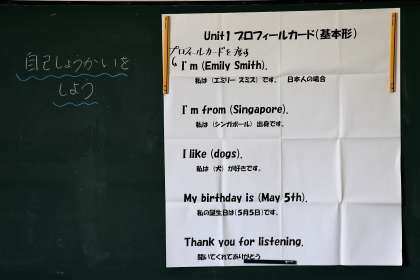 自己しょうかいを
しよう
Unit1 プロフィールカード(基本形)
プロフィールカードを渡す
I'm (Emily Smith).
私は (エミリー スミス) です。 日本人の場合
I'm from (Singapore).
私は (シンガポール) 出身です。
I like (dogs).
私は (犬) が好きです。
My birthday is (May 5th).
私の誕生日は(5月5日)です。
Thank you for listening.
聞いてくれてありがとう